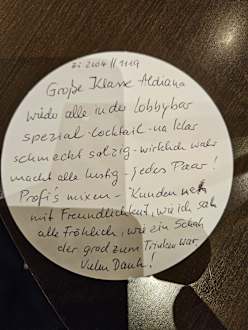 Zi 2104 // 1119
Große Klasse Aldiana
wieder alle in der Lobbybar
spezial-Cocktail-na klar
schmeckt salzig-wirklich wahr
macht alle lustig - jedes Paar!
Profi's mixen - Kunden
mit Freundlichkeit, wie ich sah
alle Fröhlich, wie ein Schah
der grad zum Trinken war
Vielen Dank!